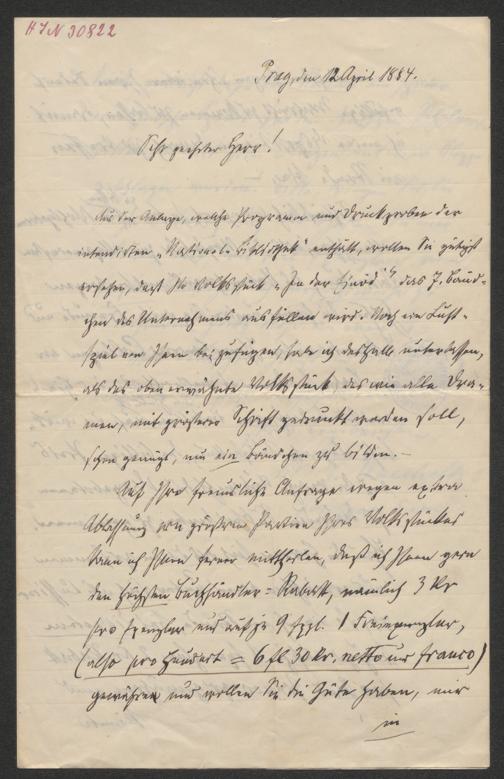 HIN 30822
Prag, den 12 April 1884.
Sehr geehrter Herr!
Aus der Anlage, welche Programm und Druckproben der
intendirten „National-Bibliothek" enthält, wollen Sie gütigst
ersehen, daß Ihr Volksstück „In der Einöd" das 7. Bänd-
chen des Unternehmens ausfüllen wird. Noch ein Lust-
spiel von Ihnen beizufügen, habe ich deshalb unterlassen,
als das oben erwähnte Volksstück, das wie alle Dra-
men, mit größerer Schrift gedruckt werden soll,
schon genügt, um ein Bändchen zu bilden. —
Auf Ihre freundliche Anfrage wegen extra
Ablassung von größeren Partien Ihres Volksstückes
kann ich Ihnen ferner mittheilen, daß ich Ihnen gern
den höchsten Buchhändler-Rabatt, nämlich 7 Kr
pro Exemplar und auf je 9 Expl. 1 Freiexemplar,
(also pro Hundert = 6 fl 30 kr. netto und franco)
gewähren und wollen Sie die Güte haben, mir
in